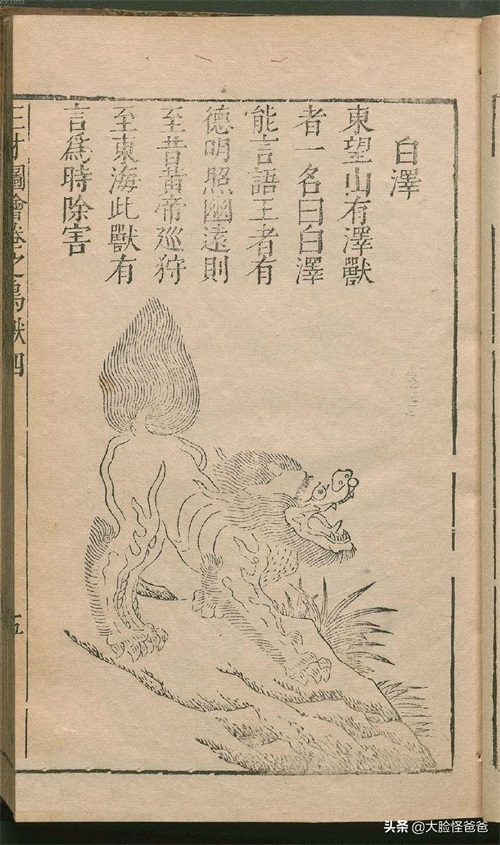 白澤
東望山有澤獸
者一名曰白澤
能言語王者有
德明照幽遠則
至昔黃帝廵狩
至東海此獸有
言為時除害
三才圖會卷之鳥獸四
五
头条 @大脸怪爸爸